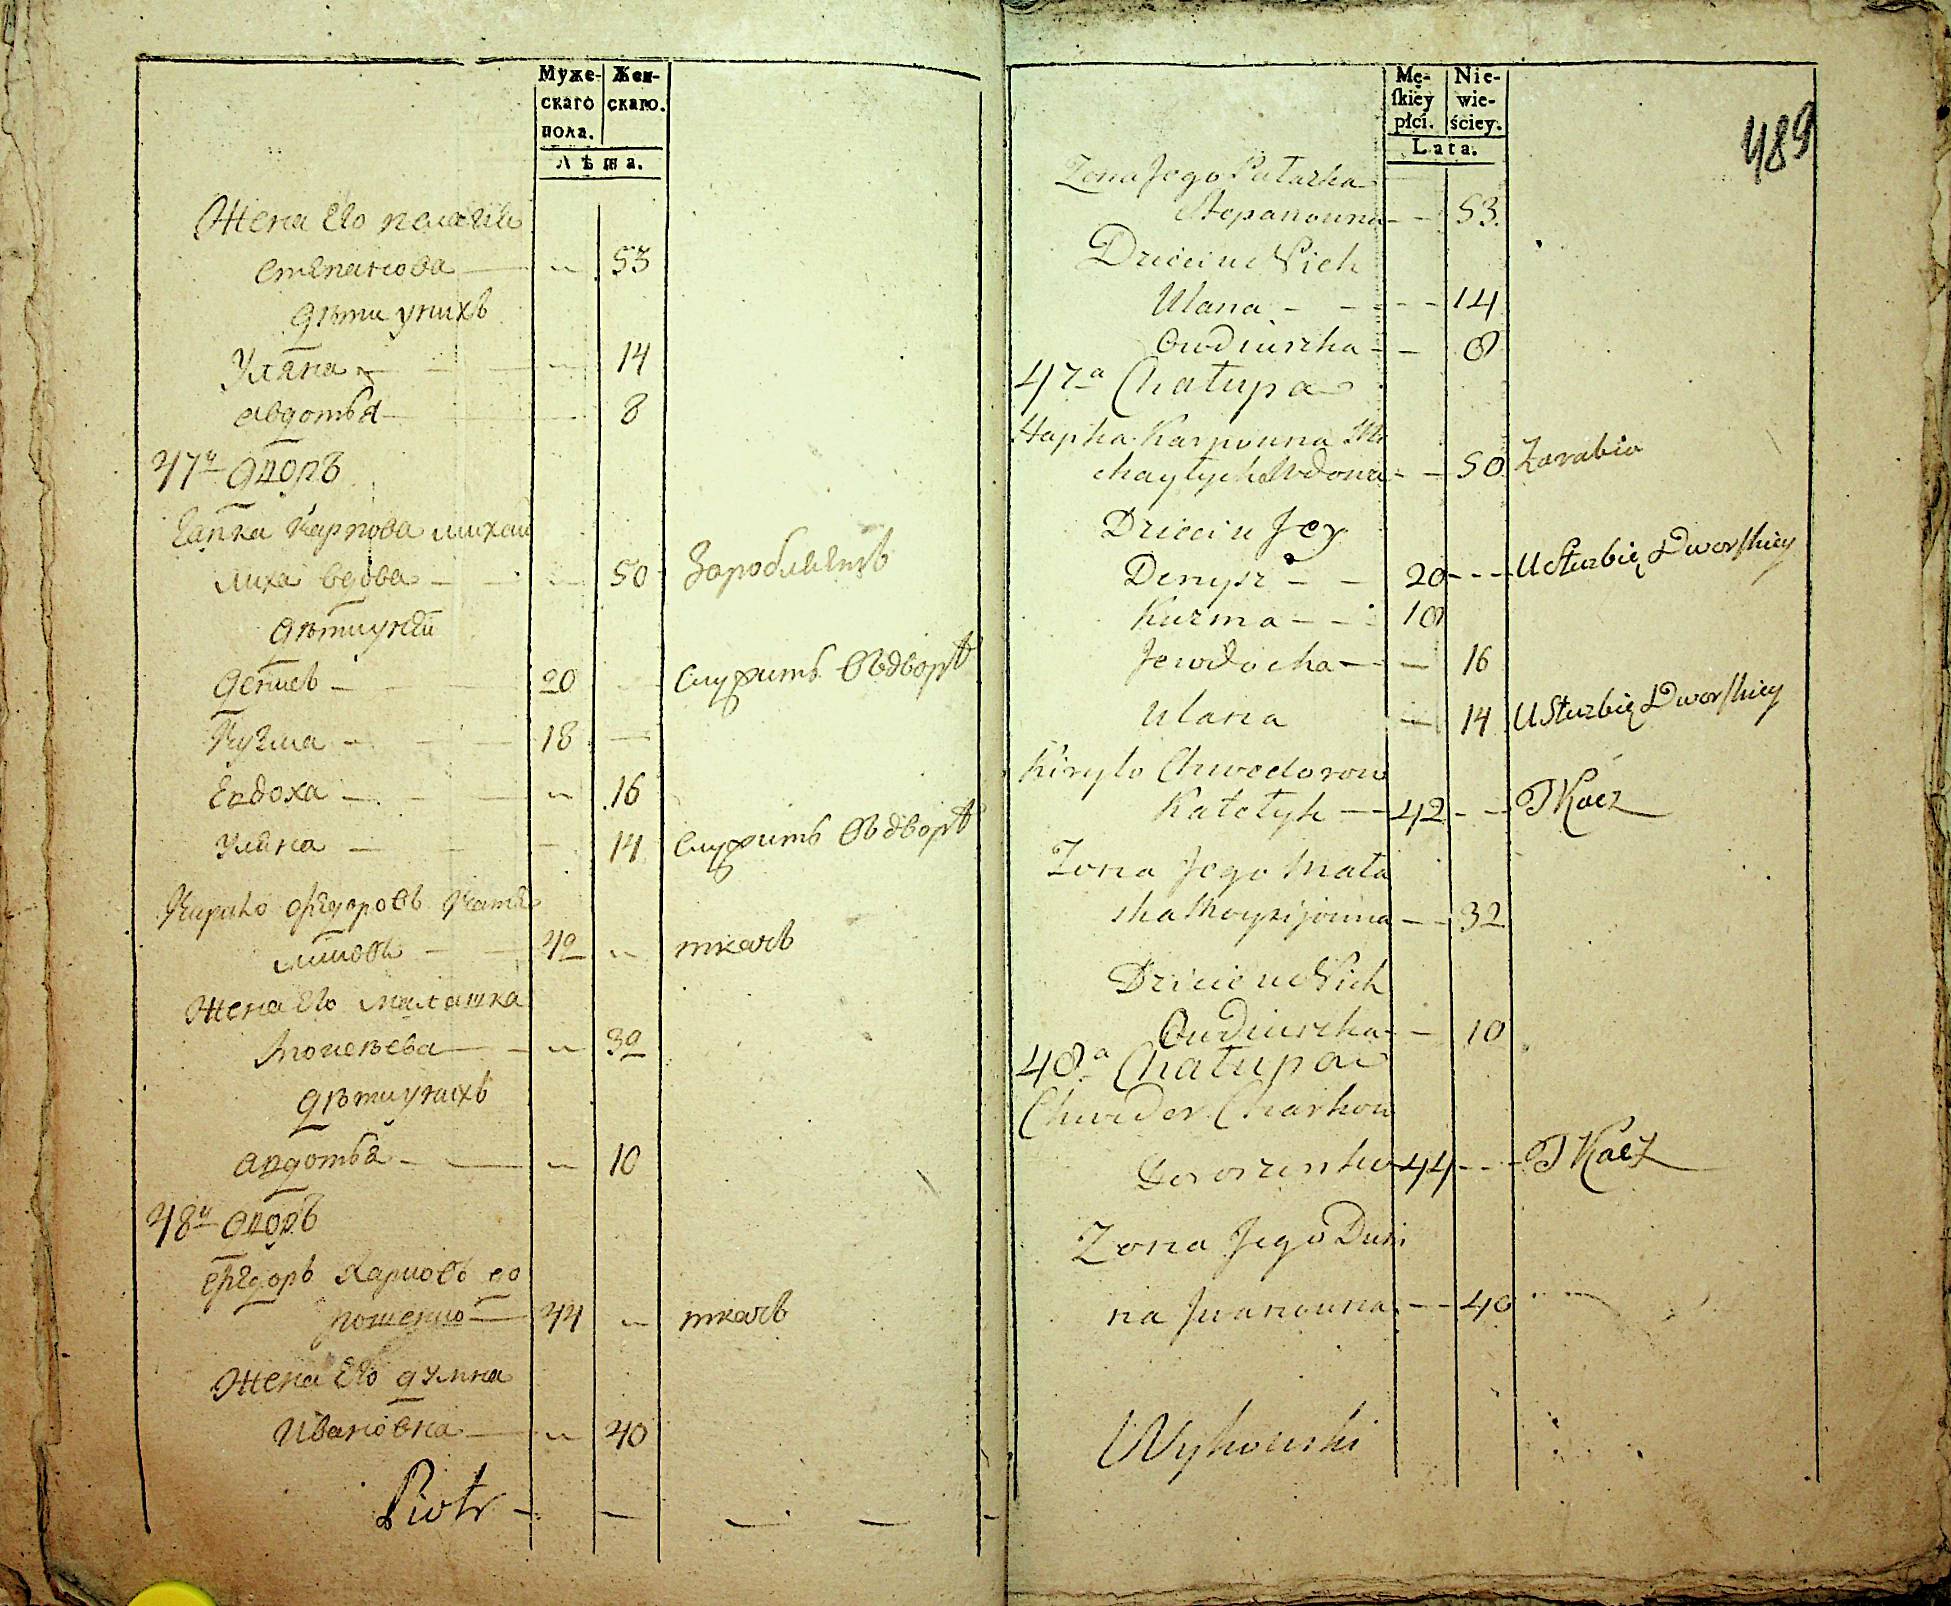 Муже-
скаго
пола.
Жен-
скаго.
Лѣта.
Жена Его пелагия
степанова — 53
дѣти у нихъ
Уляна — 14
авдотья — 8
47й дворъ
Гапка Карпова михай
лиха вдова — 50 Заробляетъ
дѣти у ней
денисъ — 20 служитъ въ дворѣ
Кузма — 18
Евдоха — 16
Уляна — 14 служитъ въ дворѣ
Кирило Ѳедоровъ
42 ткачь
Жена Его малашка
Моисѣева — 32
дѣти у нихъ
авдотья — 10
48й дворъ
Ѳедоръ Харковъ до
рошенко — 44 ткачь
Жена Его думна
Ивановна — 40
Piotr — — — — —
Mę-
skiéy
płci.
Nie-
wie-
ściey.
Lata.
489
Żona Jego Pałazka
Stepanowna — — 53
Dzieci u Nich
Ulana — — — 14
Owdiuszka — — 8
47a Chałupa
Hapka Karpowna Mi
chayłycha Wdowa — — 50 Zarabia
Dzieci u Jey
Denysz — — 20 — — — U Służbię Dworskiey
Kuzma — — 18
Jewdocha — — 16
Ulana — 14 U Służbię Dworskiey
Kiryło Chwedorow
Katełyk — 42 — — Tkacz
Żona Jego Mała
szka Moysijowna — — 32
Dzieci u Nich
Owdiuszka — 10
48a Chałupa
Chwedor Charkow
Doroszenko 44 — — — Tkacz
Żona Jego Dum
na Iwanowna — — 40
Wykowski